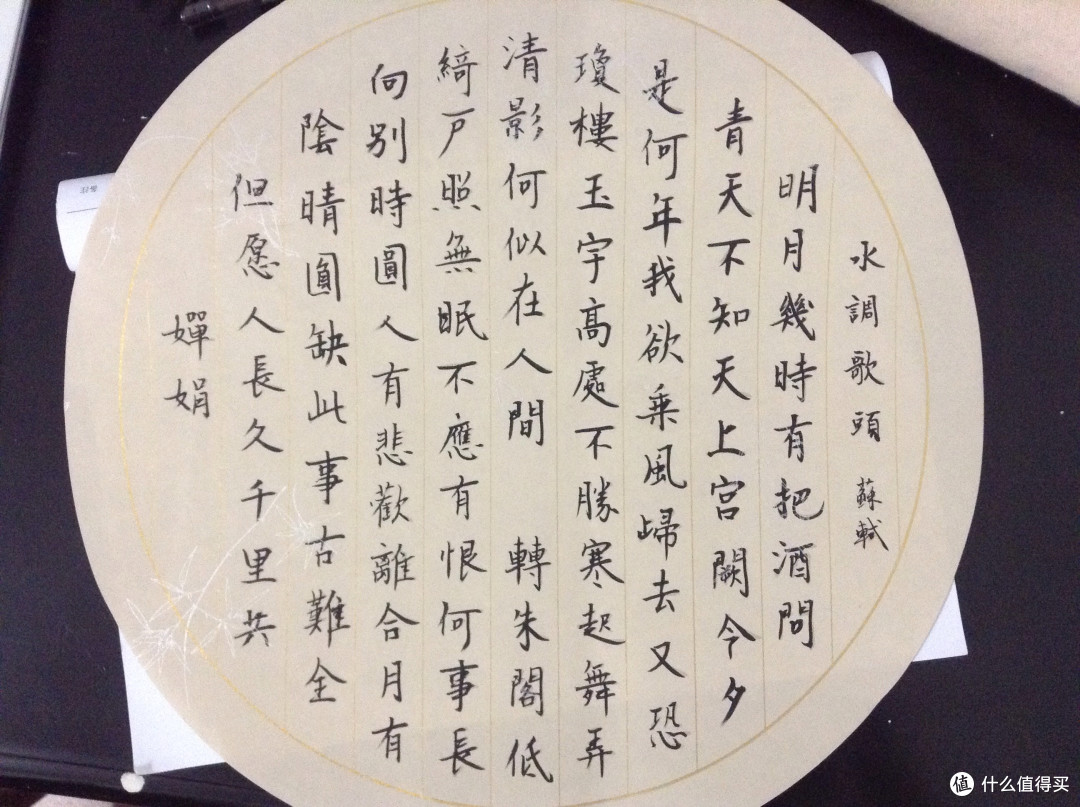 水調歌頭 蘇軾
明月幾時有把酒問
青天不知天上宮闕今夕
是何年我欲乘風歸去又恐
瓊樓玉宇高處不勝寒起舞弄
清影何似在人間 轉朱閣低
綺戶照無眠不應有恨何事長
向別時圓人有悲歡離合月有
陰晴圓缺此事古難全
但愿人長久千里共
嬋娟
值 什么值得买